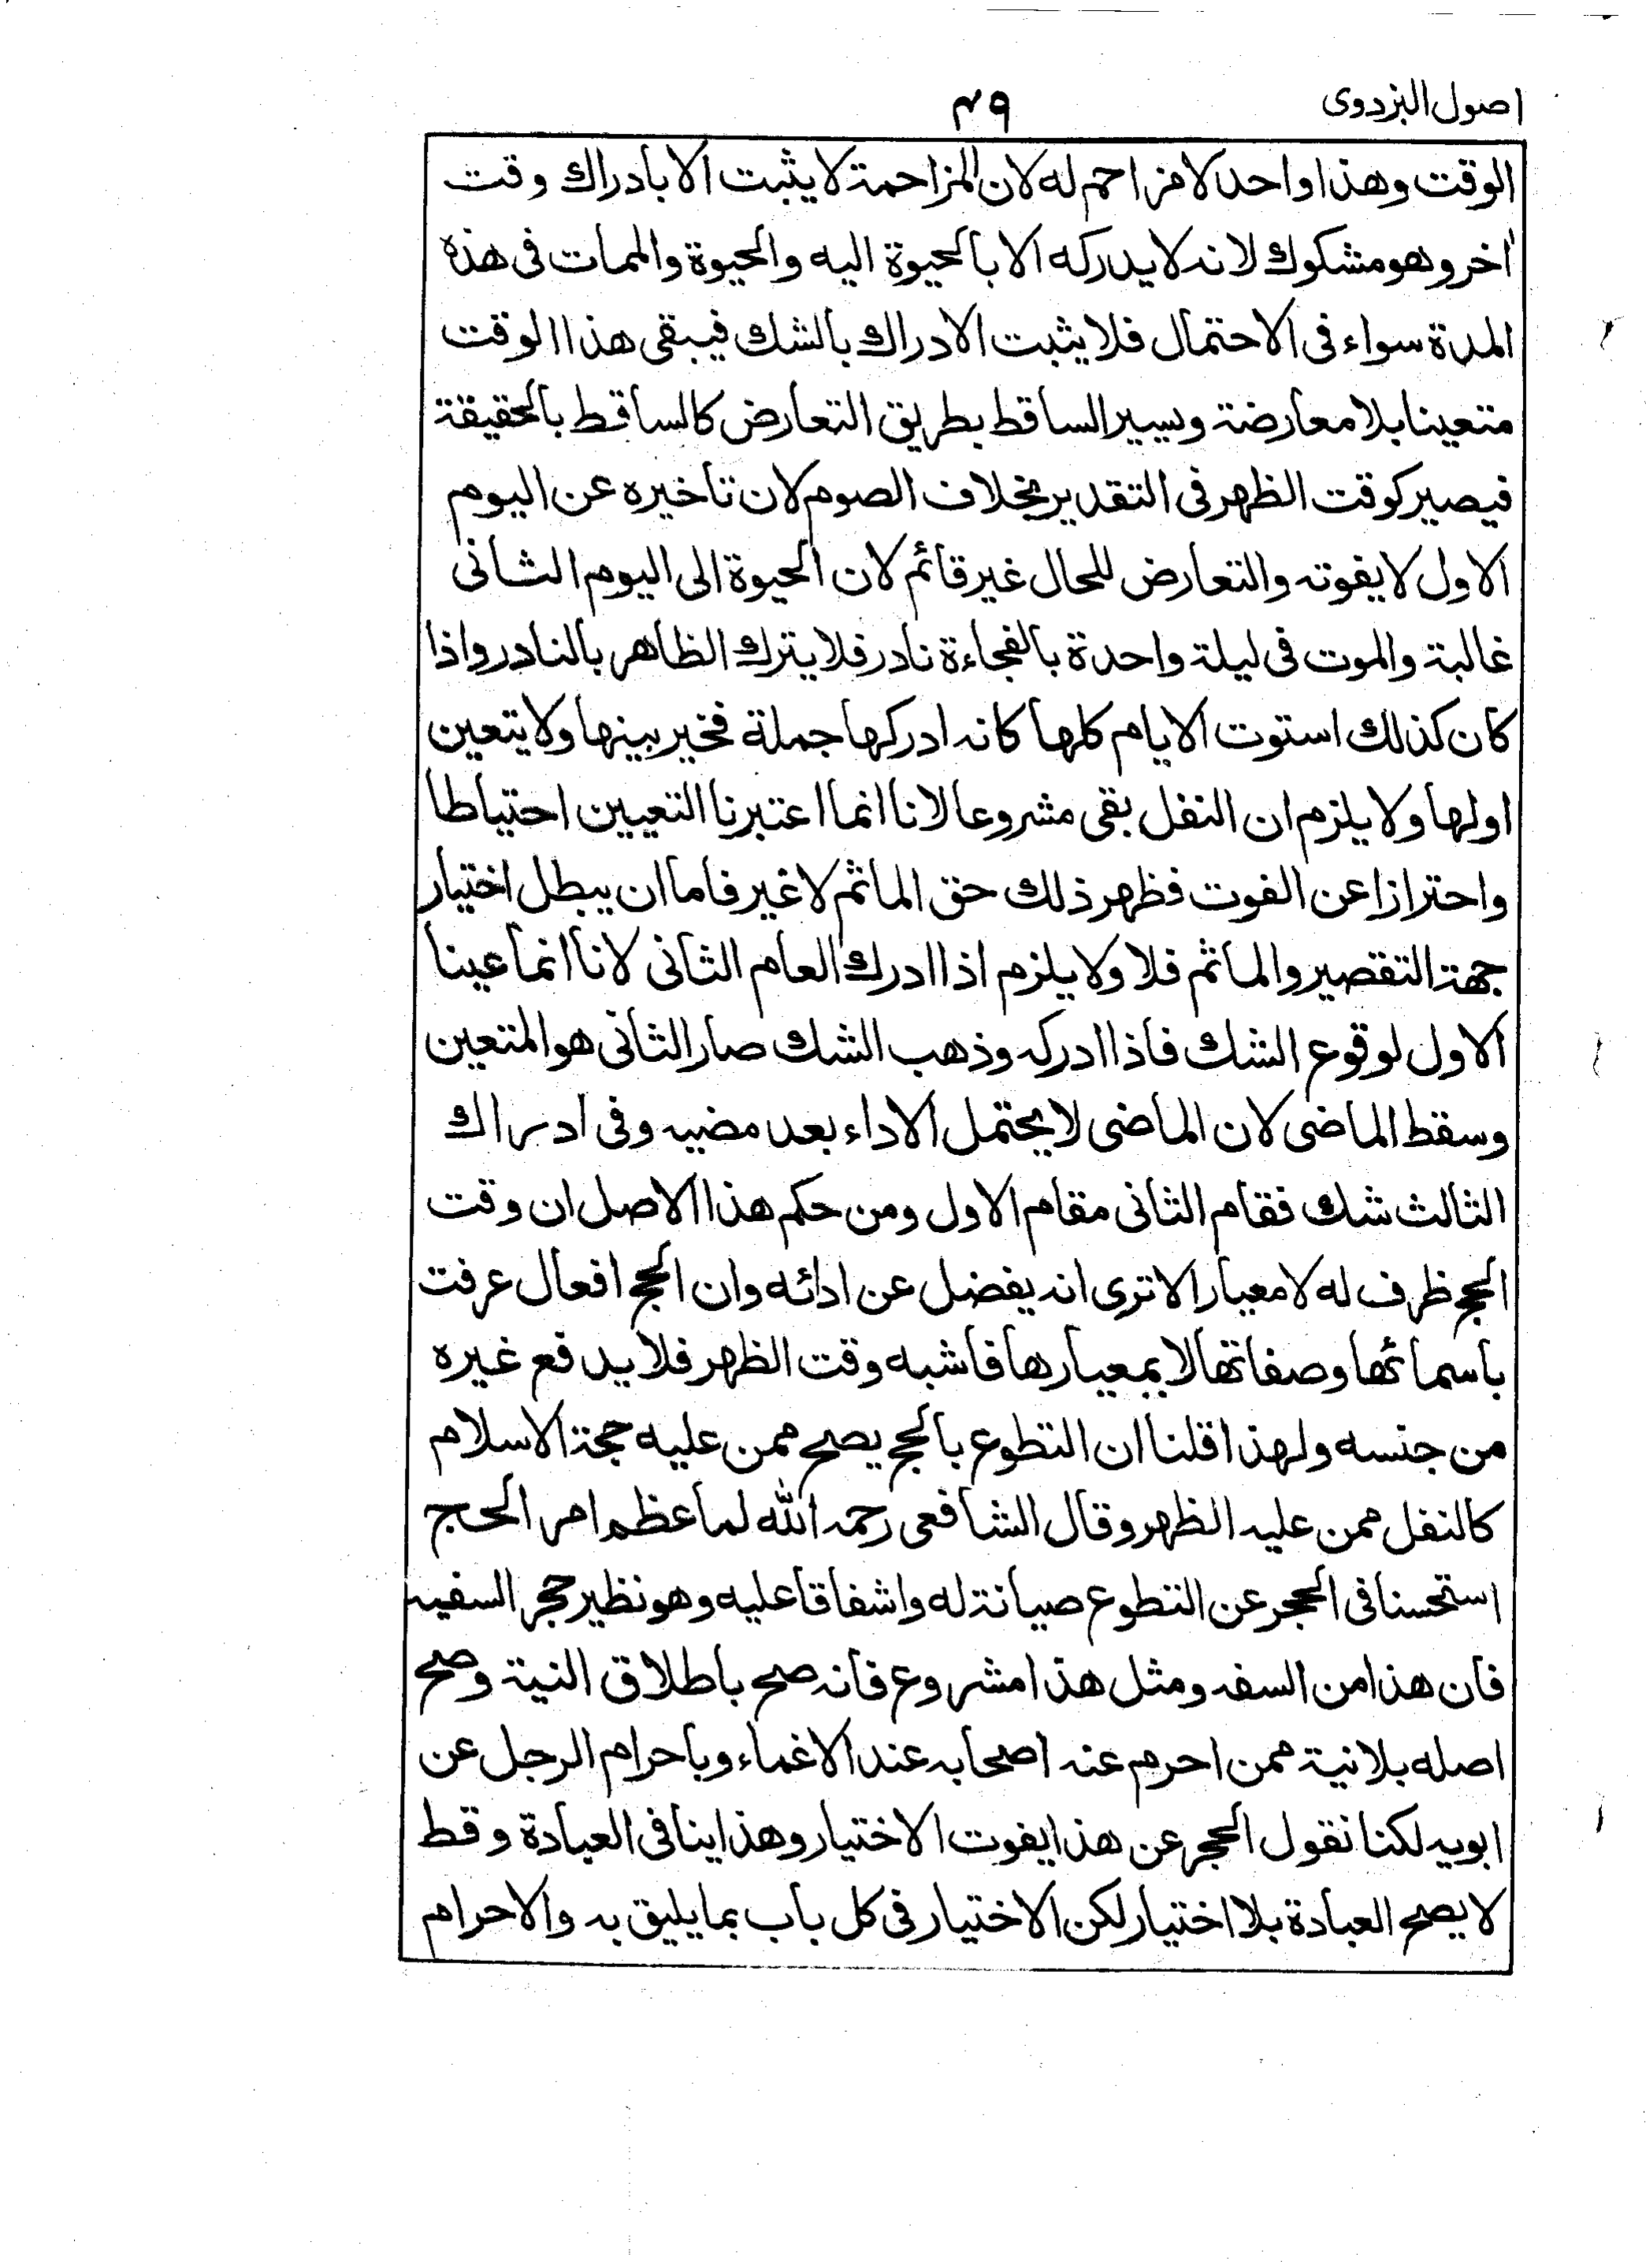 اصول البزدوى
٤٩
الوقت وهذا واحد لا مزاحم له لان المزاحمة لا يثبت الا بادراك وقت
اٰخر وهو مشكوك لانه لا يدركه الا بالحيوة اليه والحيوة والممات فى هذه
المدة سواء فى الاحتمال فلا يثبت الادراك بالشك فيبقى هذا الوقت
متعينا بلا معارضة ويسير الساقط بطريق التعارض كالساقط بالحقيقة
فيصير كوقت الظهر فى التقدير بخلاف الصوم لان تاخيره عن اليوم
الاول لا يفوته والتعارض للحال غير قائم لان الحيوة الى اليوم الثانى
غالبة والموت فى ليلة واحدة بالفجاءة نادر فلا يترك الظاهر بالنادر واذا
كان كذلك استوت الايام كلها كانه ادركها جملة فخير بينها ولا يتعين
اولها ولا يلزم ان النفل بقى مشروعا لانا انما اعتبرنا التعيين احتياطا
واحترازا عن الفوت فظهر ذلك حق الماثم لا غير فاما ان يبطل اختيار
جهة التقصير والماثم فلا ولا يلزم اذا ادرك العام الثانى لانا انما عينا
الاول لوقوع الشك فاذا ادركه وذهب الشك صار الثانى هو المتعين
وسقط الماضى لان الماضى لا يحتمل الاداء بعد مضيه وفى ادراك
الثالث شك فقام الثانى مقام الاول ومن حكم هذا الاصل ان وقت
الحج ظرف له لا معيار الا ترى انه يفضل عن ادائه وان الحج افعال عرفت
باسمائها وصفاتها لا بمعيارها فاشبه وقت الظهر فلا يدفع غيره
من جنسه ولهذا قلنا ان التطوع بالحج يصح ممن عليه حجة الاسلام
كالنفل ممن عليه الظهر وقال الشافعى رحمه الله لما عظم امر الحج
استحسنا فى الحجر عن التطوع صيانة له واشفاقا عليه وهو نظير حجر السفيه
فان هذا من السفه ومثل هذا مشروع فانه صح باطلاق النية وصح
اصله بلا نية ممن احرم عنه اصحابه عند الاغماء وباحرام الرجل عن
ابويه لكنا نقول الحجر عن هذا يفوت الاختيار وهذا ينافى العبادة وقط
لا يصح العبادة بلا اختيار لكن الاختيار فى كل باب بما يليق به والاحرام